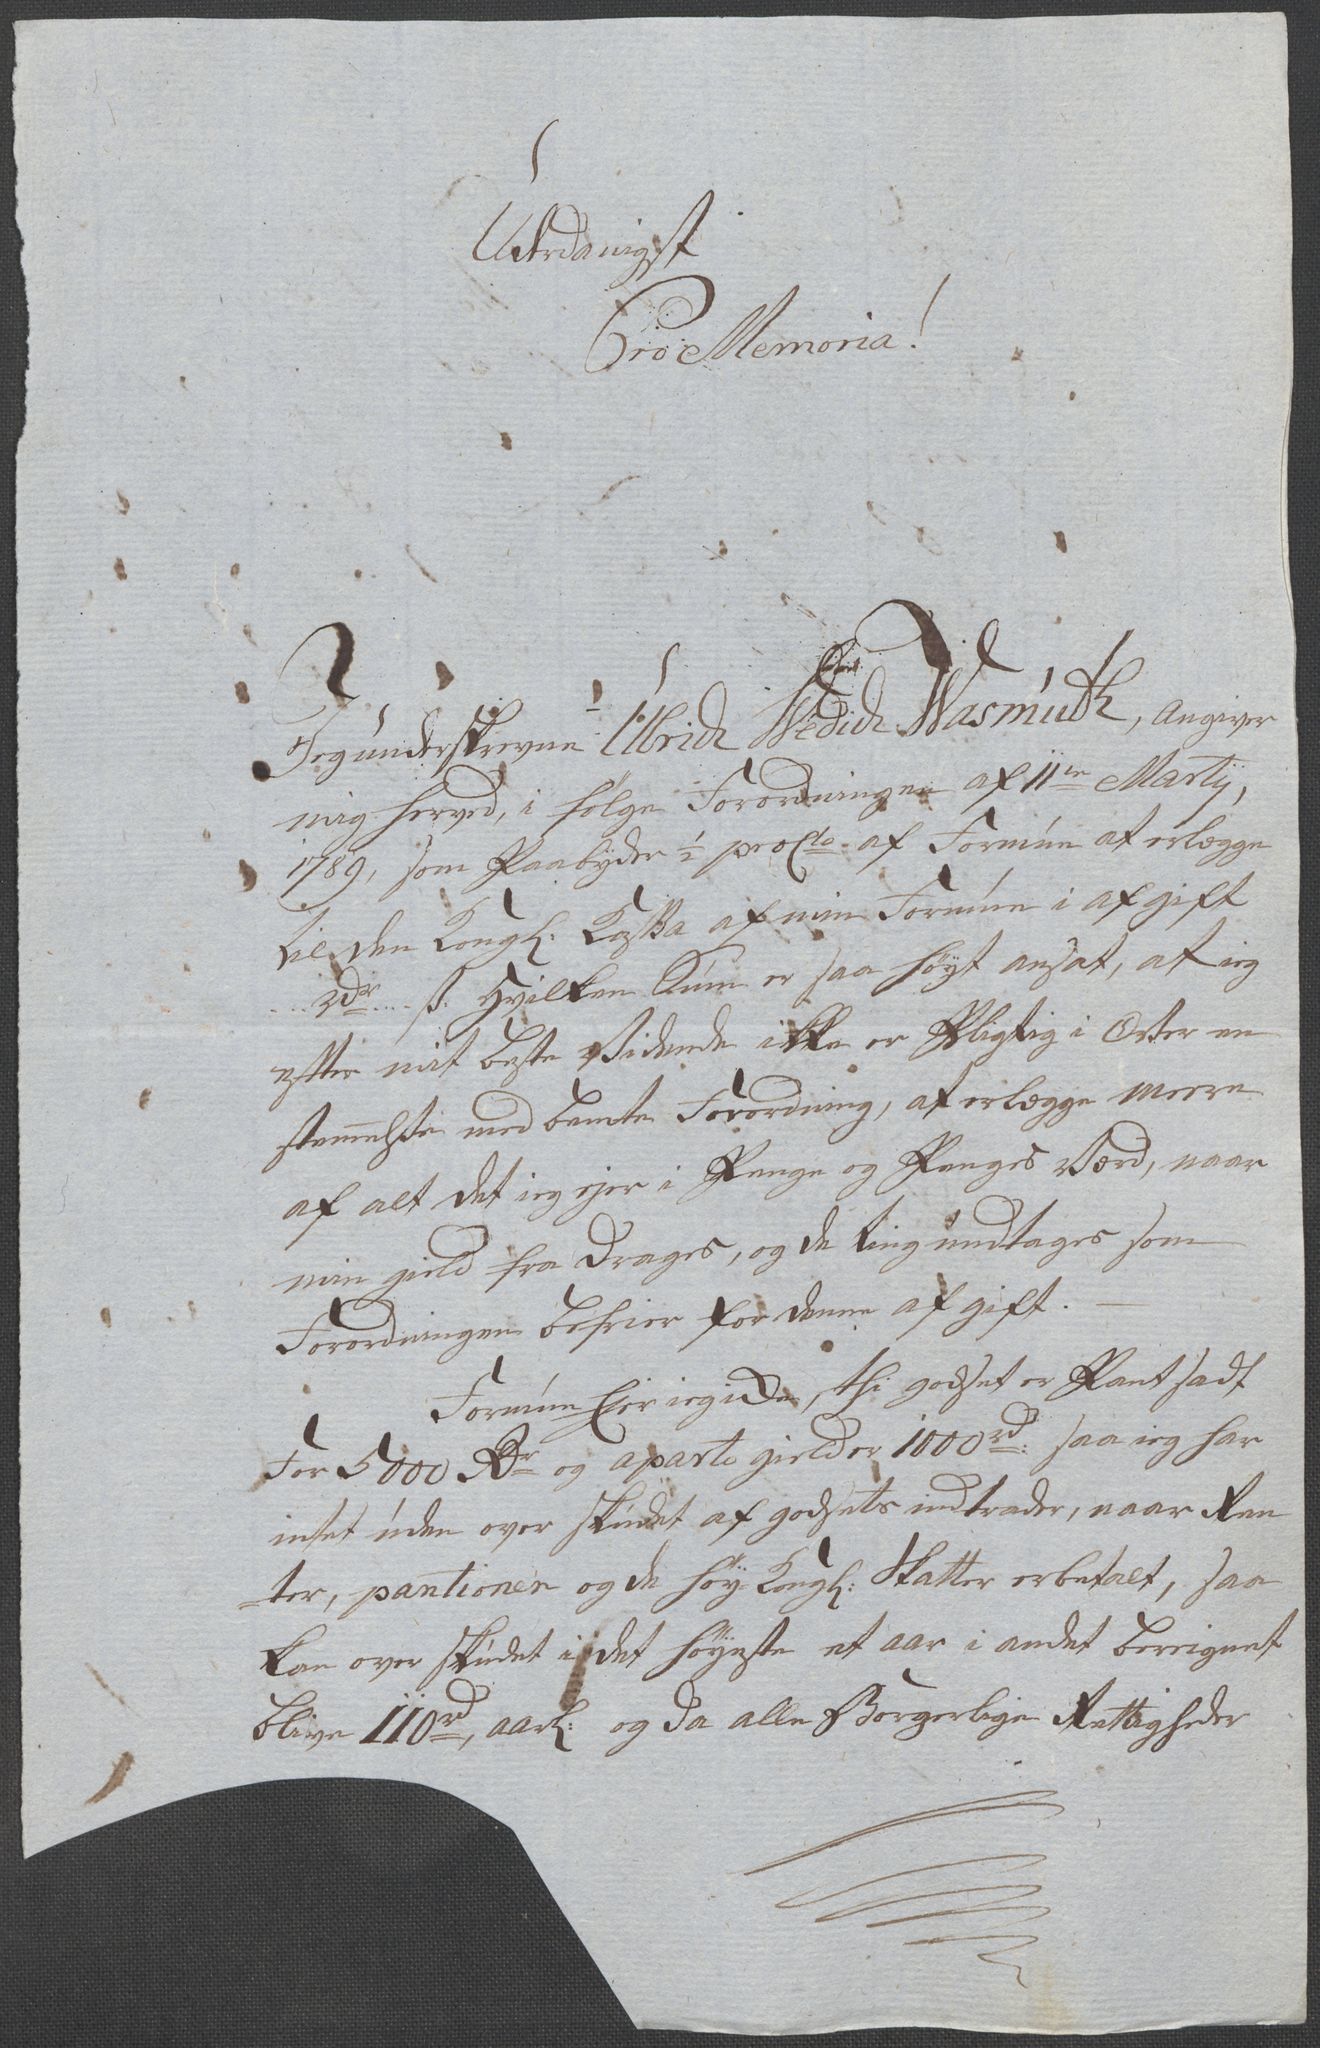 Uterdanigst
Pro Memoria!
Jeg underskrevne Ulrich Wedich Wasmuth, angiver
mig herved, i følge Forordningen af 11te Martij,
1789, som Paabyder ½ proCto af Formue at erlægge
til den Kongl: Cassa af min Formue i afgift
....rdr....s. Hvilken Sum er saa høyt ansat, at ieg
efter mit beste Vidende ikke er Pligtig i Over een
stemmelse med bemte Forordning, at erlegge meere
af alt det ieg ejer i Penge og Penges Værd, naar
min gield fra drages, og de ting undtages som
Forordningen befrier for denne afgift. —
Formue Eier ieg icke, thi godset er Pant sadt
For 5000 Rdr og aparte gield er 1000rd: saa ieg har
intet uden over skudet af godsets indtrader, naar Ren
ter, pantioner og de høy Kongl: Skatter er betalt, saa
kan over skudet i det høyeste et aar i andet bereignet
blive 110rd, aarl: og da alle Borgerlige Rettigheder